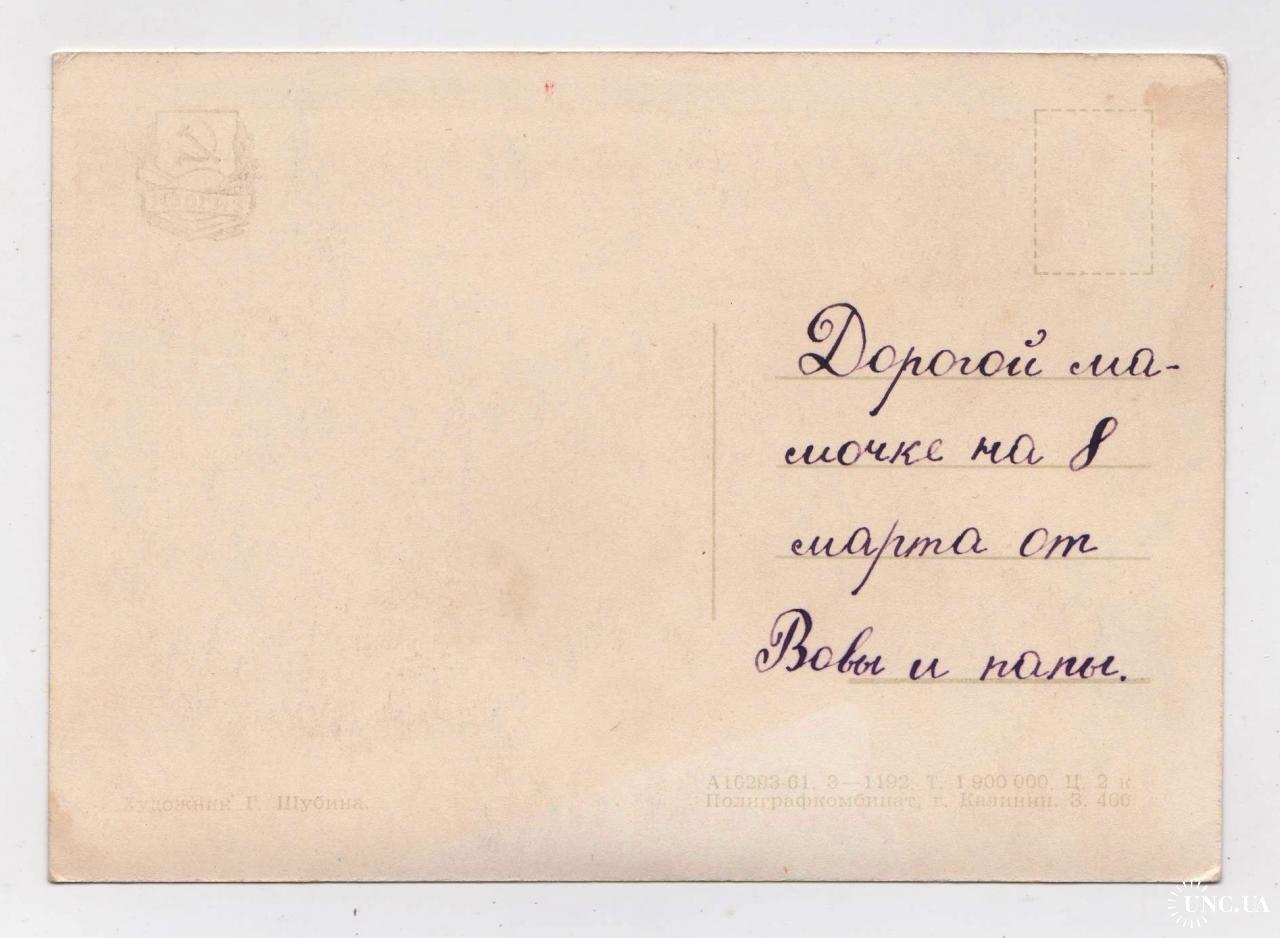 Дорогой ма-
мочке на 8
марта от
Вовы и папы.
Художник Г. Шубина.
А10293-61. З—1192. Т. 1 900 000. Ц. 2 к.
Полиграфкомбинат, г. Калинин. З. 466
UNC.UA